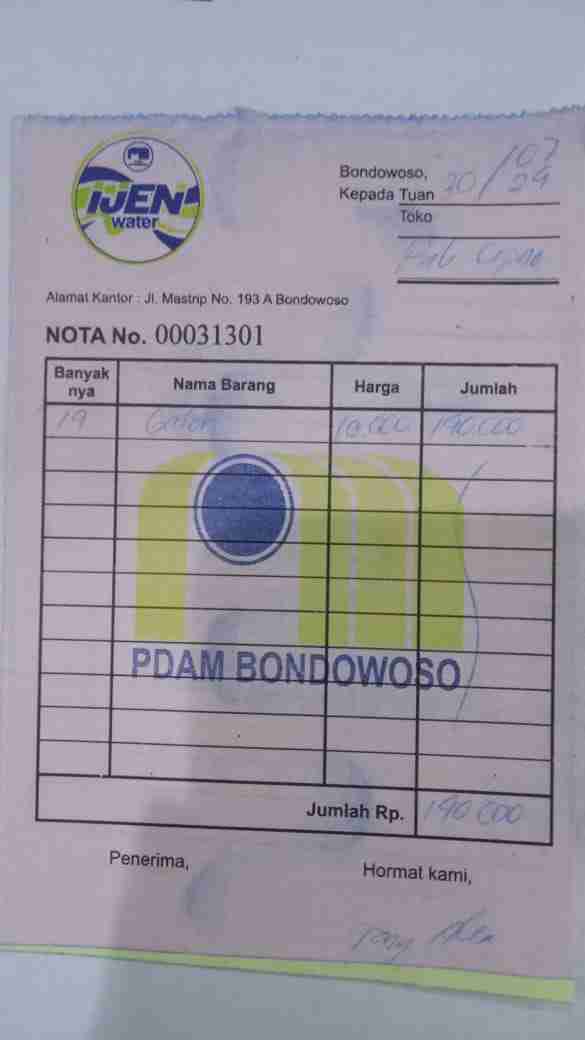 IJEN
water
Bondowoso, 20/07
Kepada Tuan 24
Toko
Alamat Kantor : Jl. Mastrip No. 193 A Bondowoso
NOTA No. 00031301
Banyak nya Nama Barang Harga Jumlah
19 Galon 10.000 190.000
PDAM BONDOWOSO
Jumlah Rp. 190.000
Penerima,
Hormat kami,